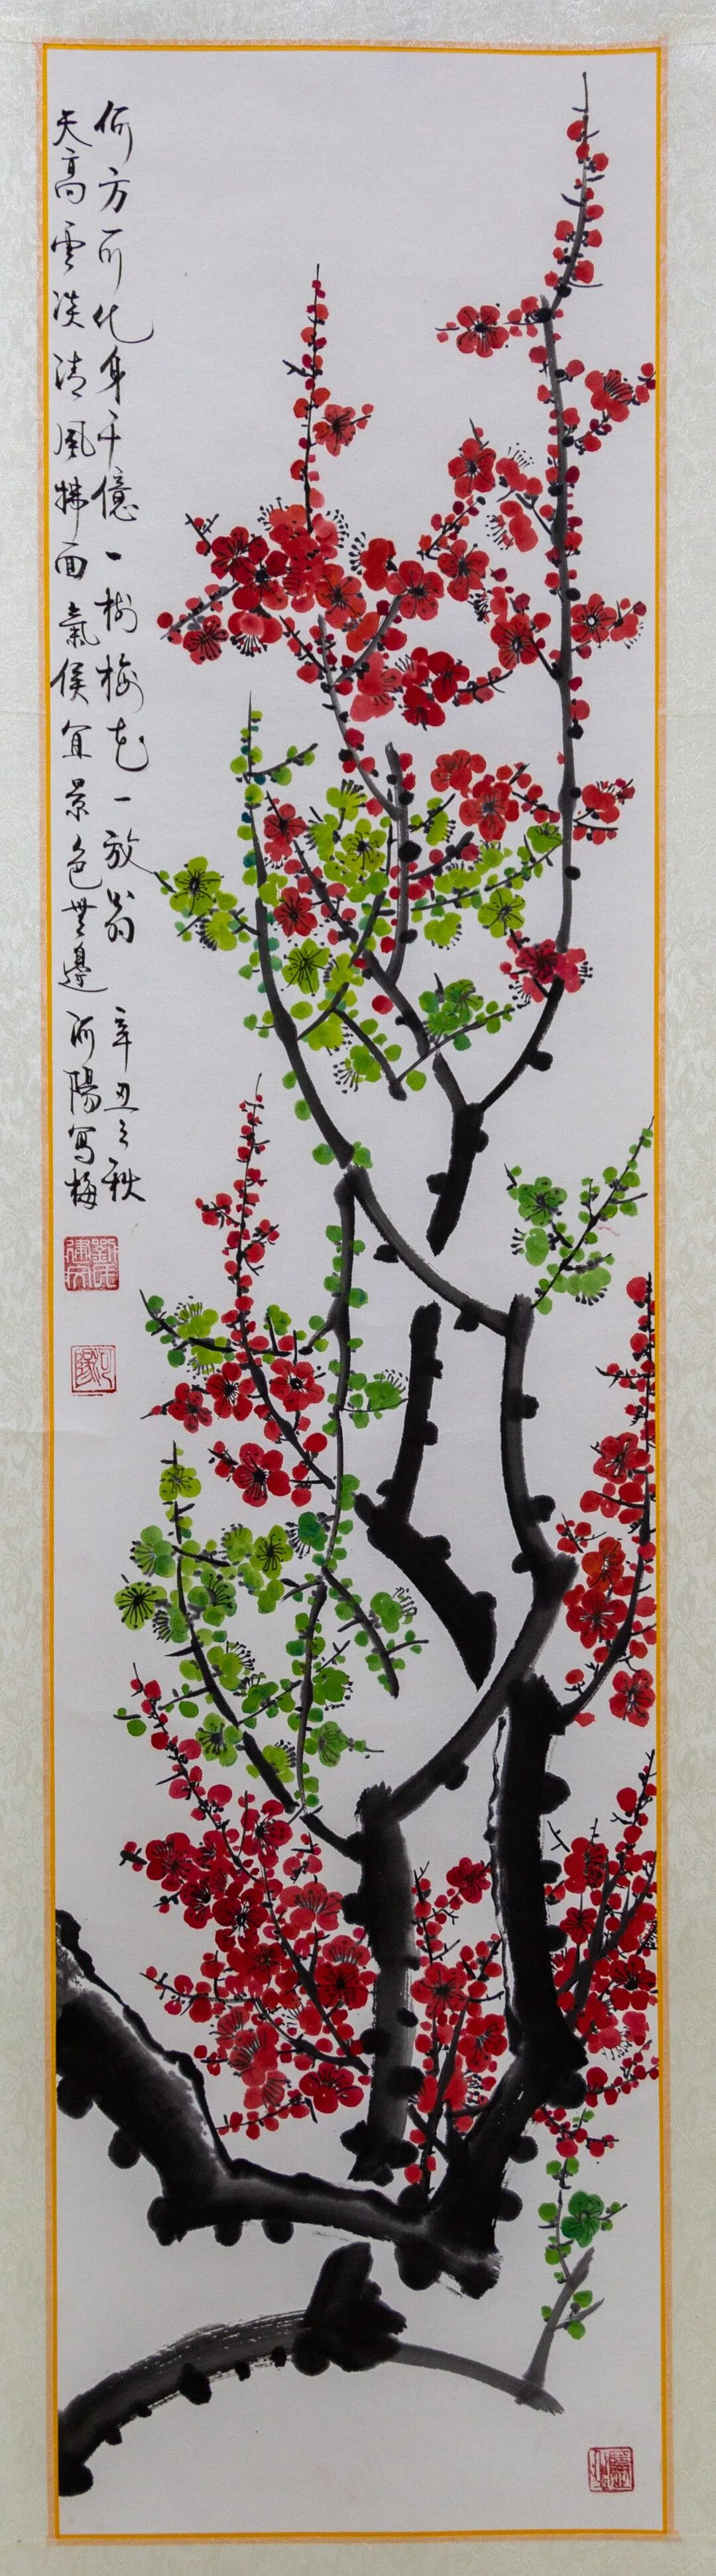 何方可化身千億一樹梅花一放翁 辛丑之秋
天高雲淡清風拂面氣候宜景色無邊 河陽写梅
河陽